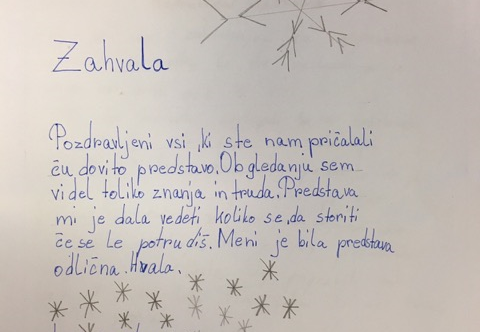 Zahvala
Pozdravljeni vsi, ki ste nam pričalali
čudovito predstavo. Ob gledanju sem
videl toliko znanja in truda. Predstava
mi je dala vedeti koliko se da storiti
če se le potrudiš. Meni je bila predstava
odlična. Hvala.